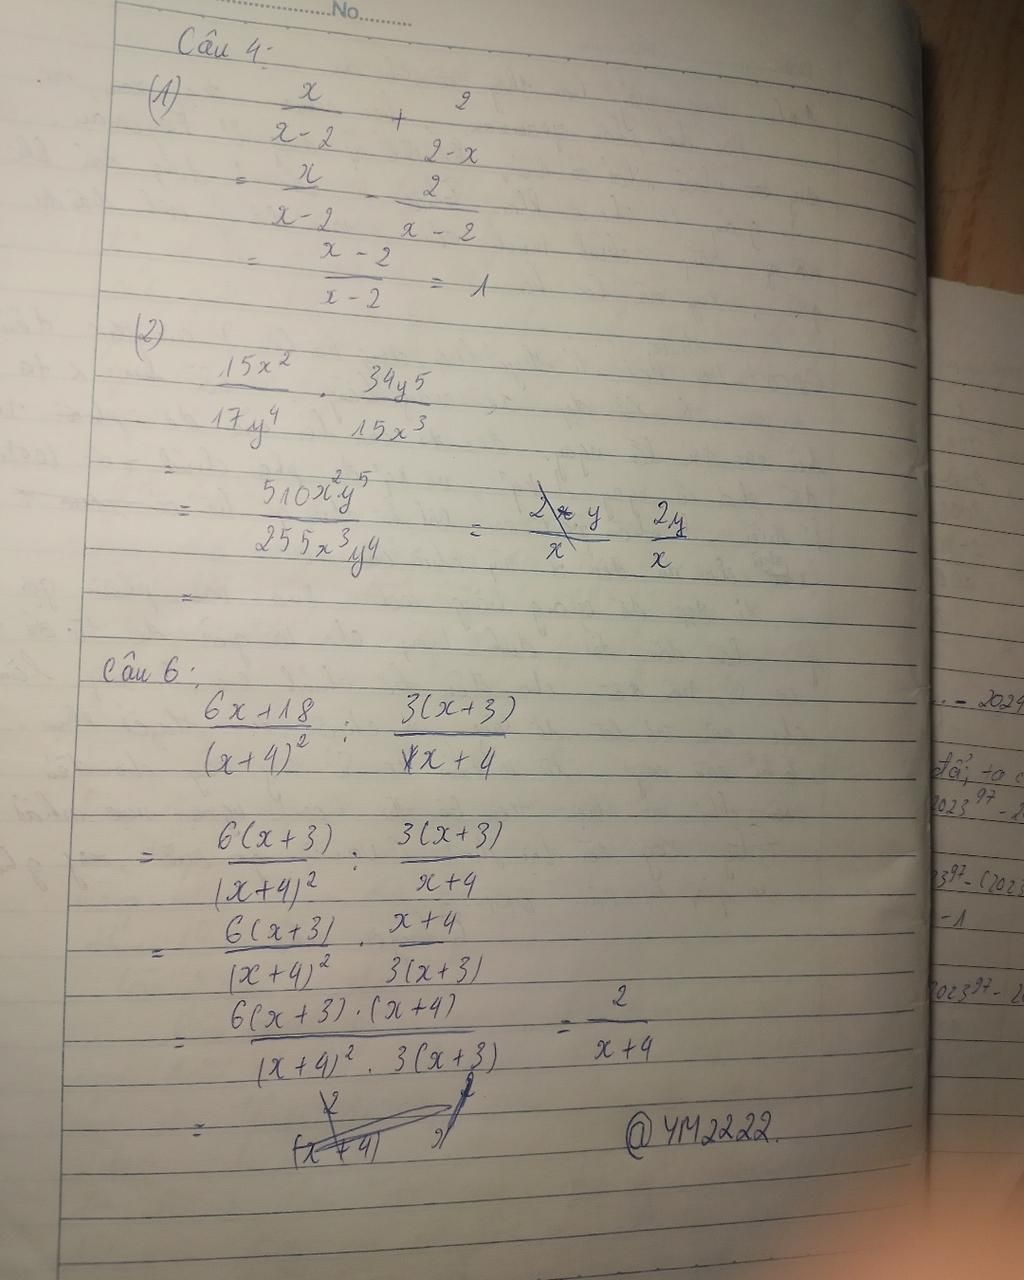 No
Câu 4:
(1) x/(x-2) + 2/(2-x)
= x/(x-2) - 2/(x-2)
= (x-2)/(x-2) = 1
(2)
15x²/17y⁴ . 34y⁵/15x³
=
= 510x²y⁵/255x³y⁴ = 2y/x
=
Câu 6:
(6x+18)/(x+4)² : 3(x+3)/(x+4)
= 6(x+3)/(x+4)² : 3(x+3)/(x+4)
= 6(x+3)/(x+4)² . (x+4)/3(x+3)
= 6(x+3).(x+4)/(x+4)².3(x+3) = 2/(x+4)
= 2/(x+4)
@YM2222.
- 2024
2023⁹⁷ - 2
-1
2023⁹⁷ - 2